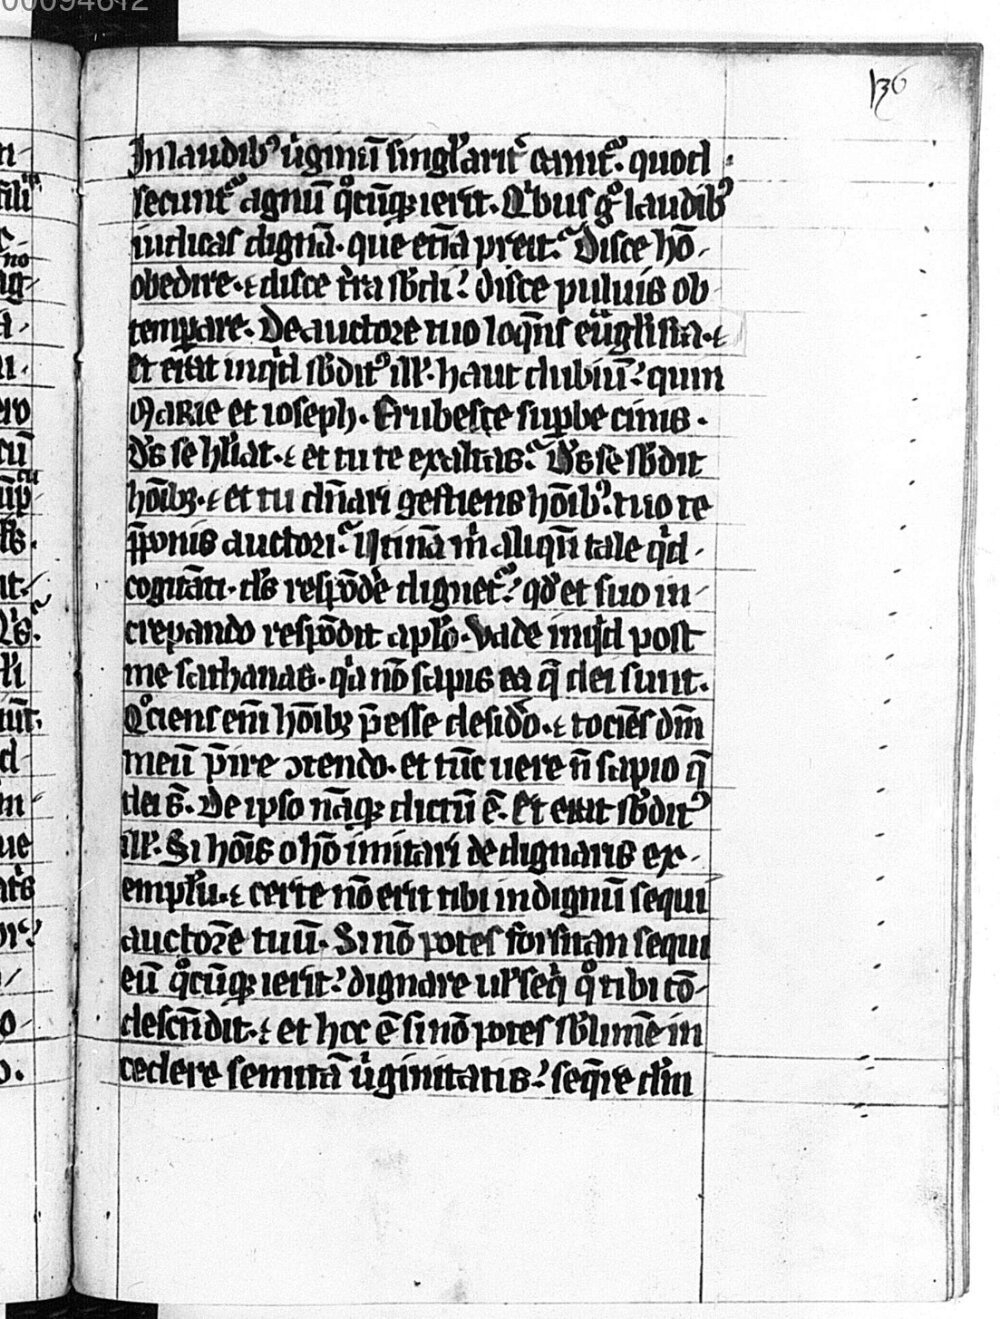 00094612
136
In laudib9 u̍ginū singl̄arit̄ canit᷑. quod
secunt᷑ agnū qͦcūq; ierit. Qͥbus gͦ laudib9
iudicas dignā. que etiā preit᷑. Disce hō-
obedire. disce t̄ra sb̄di. disce puluis ob
temꝑare. De auctore tuo loqn̄s euãgl̄ista.
Et erat inqͥd sb̄dit9 ill̄. haut dubiū. quin
MARIE et ioseph. Erubesce suꝑbe cinis.
dš se hu̅iliat. et tu te exaltas. Dš se sb̄dit
hōib;. et tu dn̄ari gestiens hōib9. tuo te
p̄ponis auctori. Utinā mͥ aliqn̄ tale qͥd
cogitāti. dš respōde̅ dignet᷑. qd̄ et suo in-
crepando respōdit apl̄o. Vade inqͥd post
me sathanas. qͥa nō sapis ea q̄ dei sunt.
Qͦciens em̄ hōib; p̄esse desid̄o. tociēs dm̄
meū p̄ire ↄtendo. et tūc uere n̄ sapio q̄
dei s̄. De ipso nāq; dictū ē. Et erat sb̄dit9
ill̄. Si hōis o hō imitari dedignaris ex-
empl̄u. certe nō erit tibi indignū sequi
auctorē tuū. Si nō potes forsitan sequi
eū qͦcūq; ierit. dignare ul̄ seqͥ qͦ tibi cō-
descn̄dit. et hoc ē si nō potes sb̄limē in
cedere semitā u̍ginitatis. seq̄re dm̄